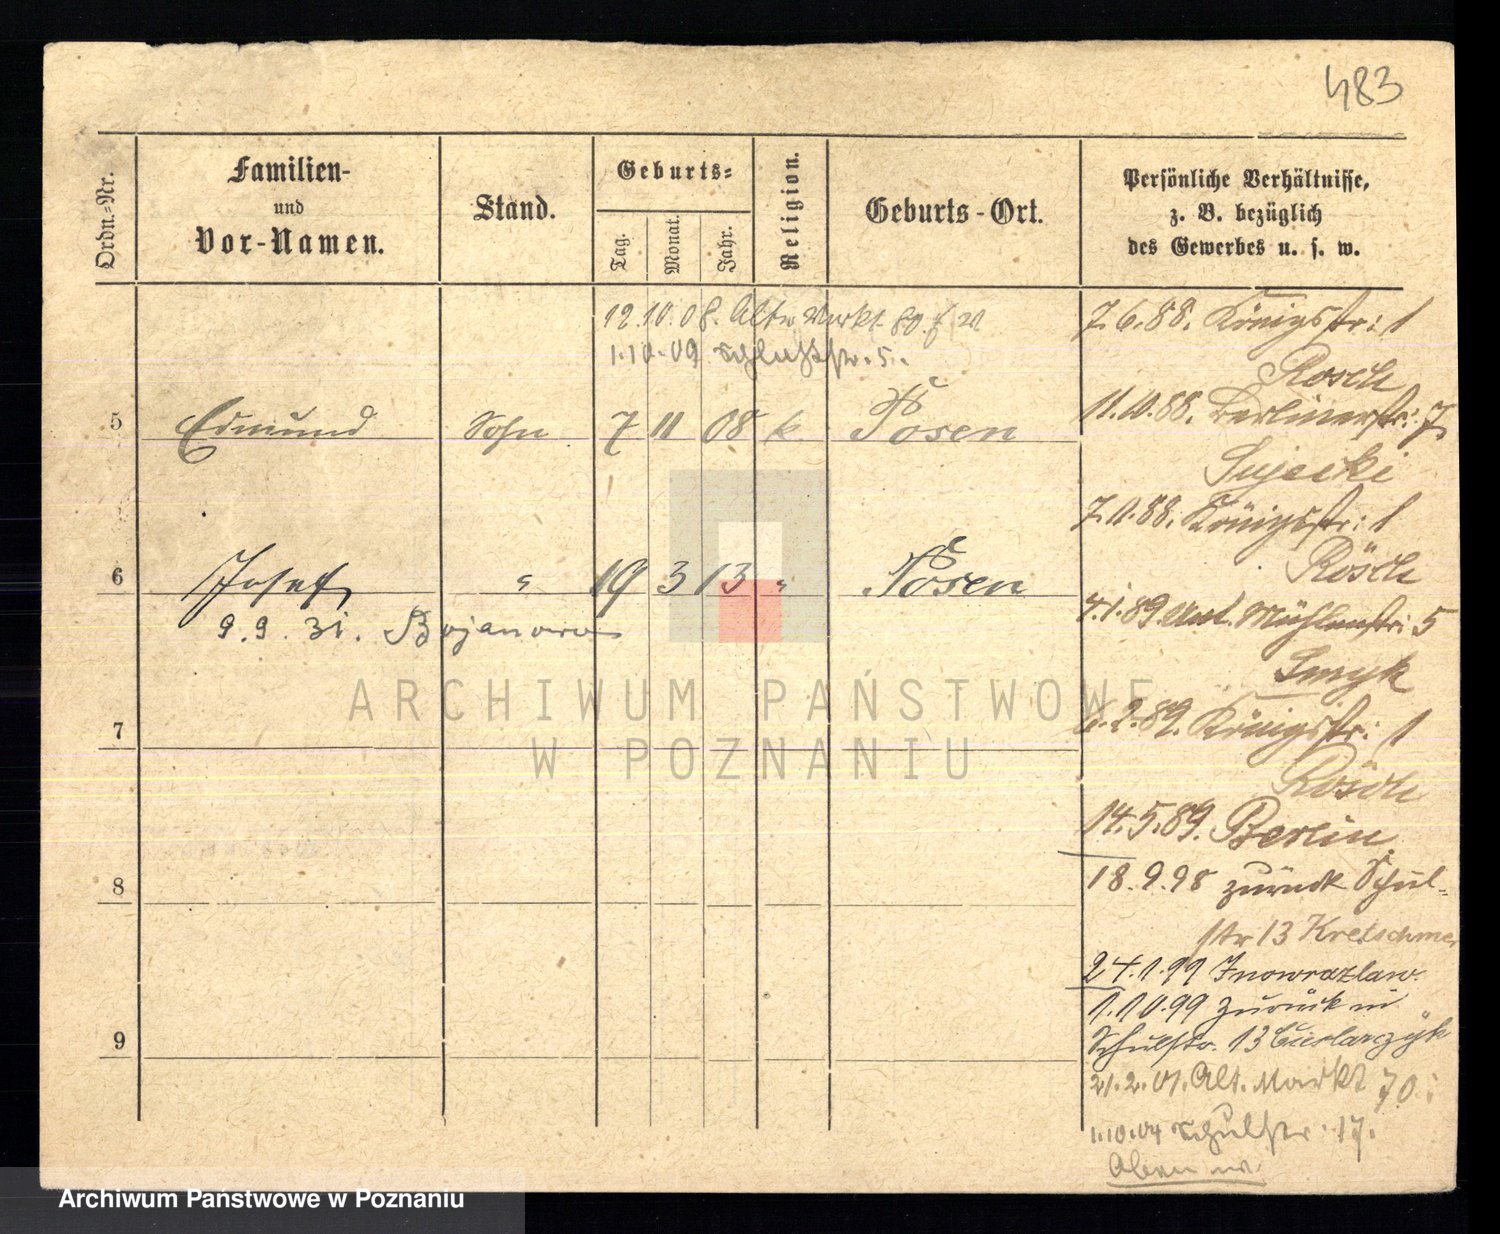 483
Ordn.-Nr.
Familien-
und
Vor-Namen.
Stand.
Geburts-
Tag.
Monat.
Jahr.
Religion.
Geburts-Ort.
Persönliche Verhältnisse,
z. B. bezüglich
des Gewerbes u. s. w.
12.10.08. Alter Markt 80
1.10.09 Schulstr. 5.
5 Edmund Sohn 7 11 08 k. Posen
6 Josef " 19 3 13 " Posen
9.9.31. Bojanowo
7
8
9
7.6.88. Königsstr: 1
Rosch
11.10.88. Berlinerstr: 7
Sujecki
7.11.88. Königsstr: 1
Rösch
4.1.89. Mühlenstr: 5
Smyk
6.2.89. Königsstr: 1
Rösch
14.5.89. Berlin
18.9.98 zurück Schul-
str 13 Kretschmer
24.1.99 Inowrazlaw.
1.10.99 zurück in
Schulstr. 13
21.2.01. Alt. Markt 70
1.10.04 Schulstr. 17.
Oben
ARCHIWUM PAŃSTWOWE
W POZNANIU
Archiwum Państwowe w Poznaniu